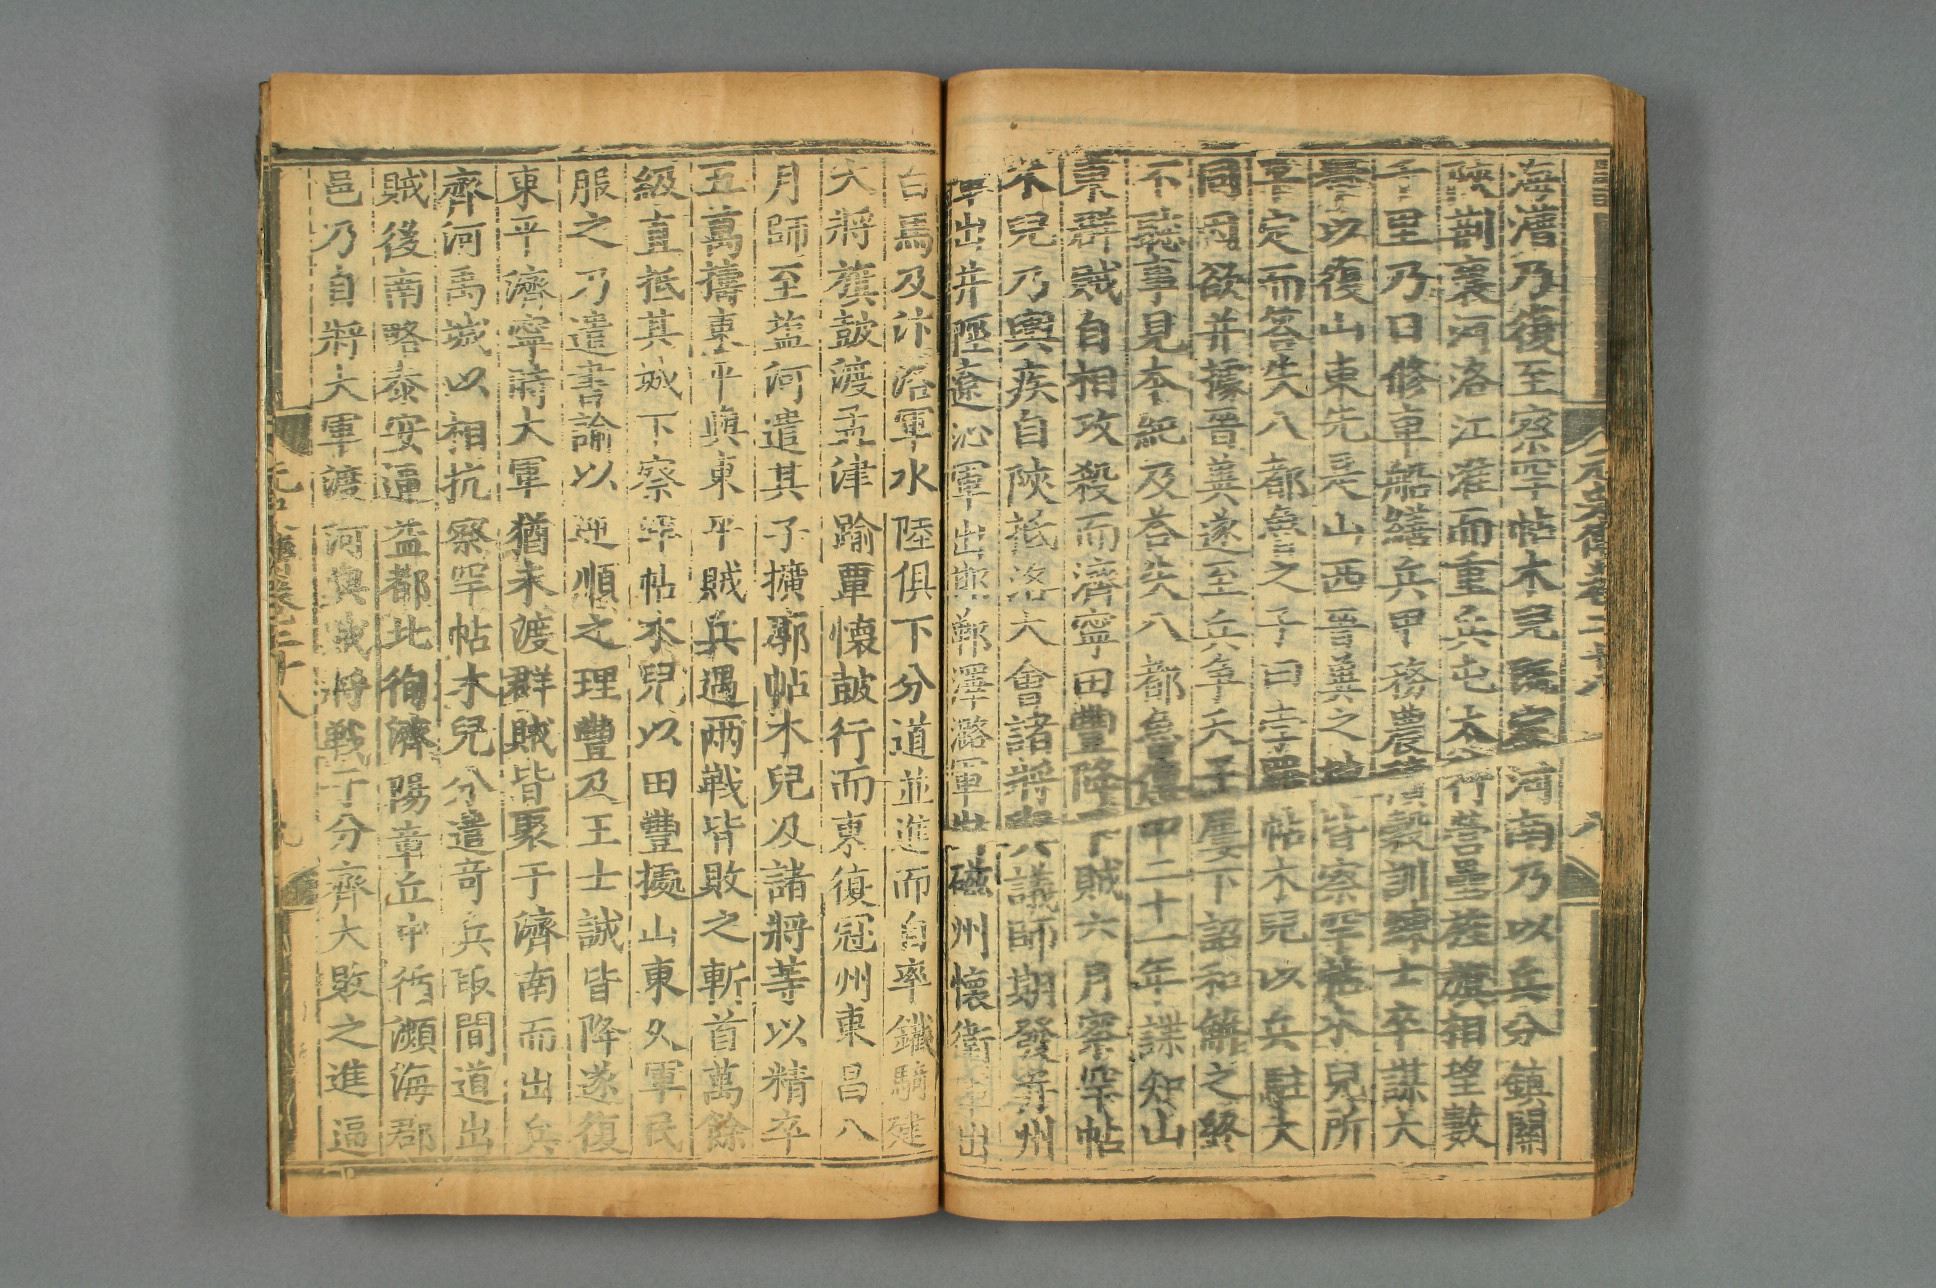 海藩乃復至察罕帖木兒既定河南乃以兵分鎮關
陝荊襄河洛江淮而重兵屯太行營壘旌旗相望數
千里乃日修車船繕兵甲務農積穀訓練士卒謀大
舉以復山東先是山西晉冀之地皆察罕帖木兒所
平定而答失八都魯之子曰孛羅帖木兒以兵駐大
同因欲并據晉冀遂至兵爭天子屢下詔和解之終
不聽事見本紀及答失八都魯傳中二十一年諜知山
東群賊自相攻殺而濟寧田豐降于賊六月察罕帖
木兒乃輿疾自陝抵洛大會諸將與議師期發并州
軍出井陘遼沁軍出邯鄲澤潞軍出磁州懷衛軍出
白馬及汴洛軍水陸俱下分道並進而自率鐵騎建
大將旗鼓渡孟津踰覃懷鼓行而東復冠州東昌八
月師至塩河遣其子擴廓帖木兒及諸將等以精卒
五萬擣東平與東平賊兵遇兩戰皆敗之斬首萬餘
級直抵其城下察罕帖木兒以田豐據山東久軍民
服之乃遣書諭以逆順之理豐及王士誠皆降遂復
東平濟寧時大軍猶未渡群賊皆聚于濟南而出兵
齊河禹城以相抗察罕帖木兒分遣奇兵取間道出
賊後南略泰安逼益都北徇濟陽章丘中循瀕海郡
邑乃自將大軍渡河與賊將戰于分齊大敗之進逼